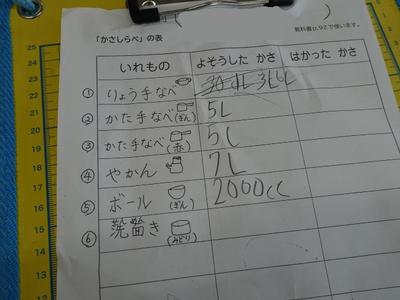 教科書p.92で使います。
「かさしらべ」の表
いれもの よそうした かさ はかった かさ
① りょう手なべ
② かた手なべ(ぎん) 5L
③ かた手なべ(赤) 5L
④ やかん 7L
⑤ ボール(ぎん) 2000cc
⑥ (みどり)
25
22
21
20
19
18
17
16
15
14
13
12